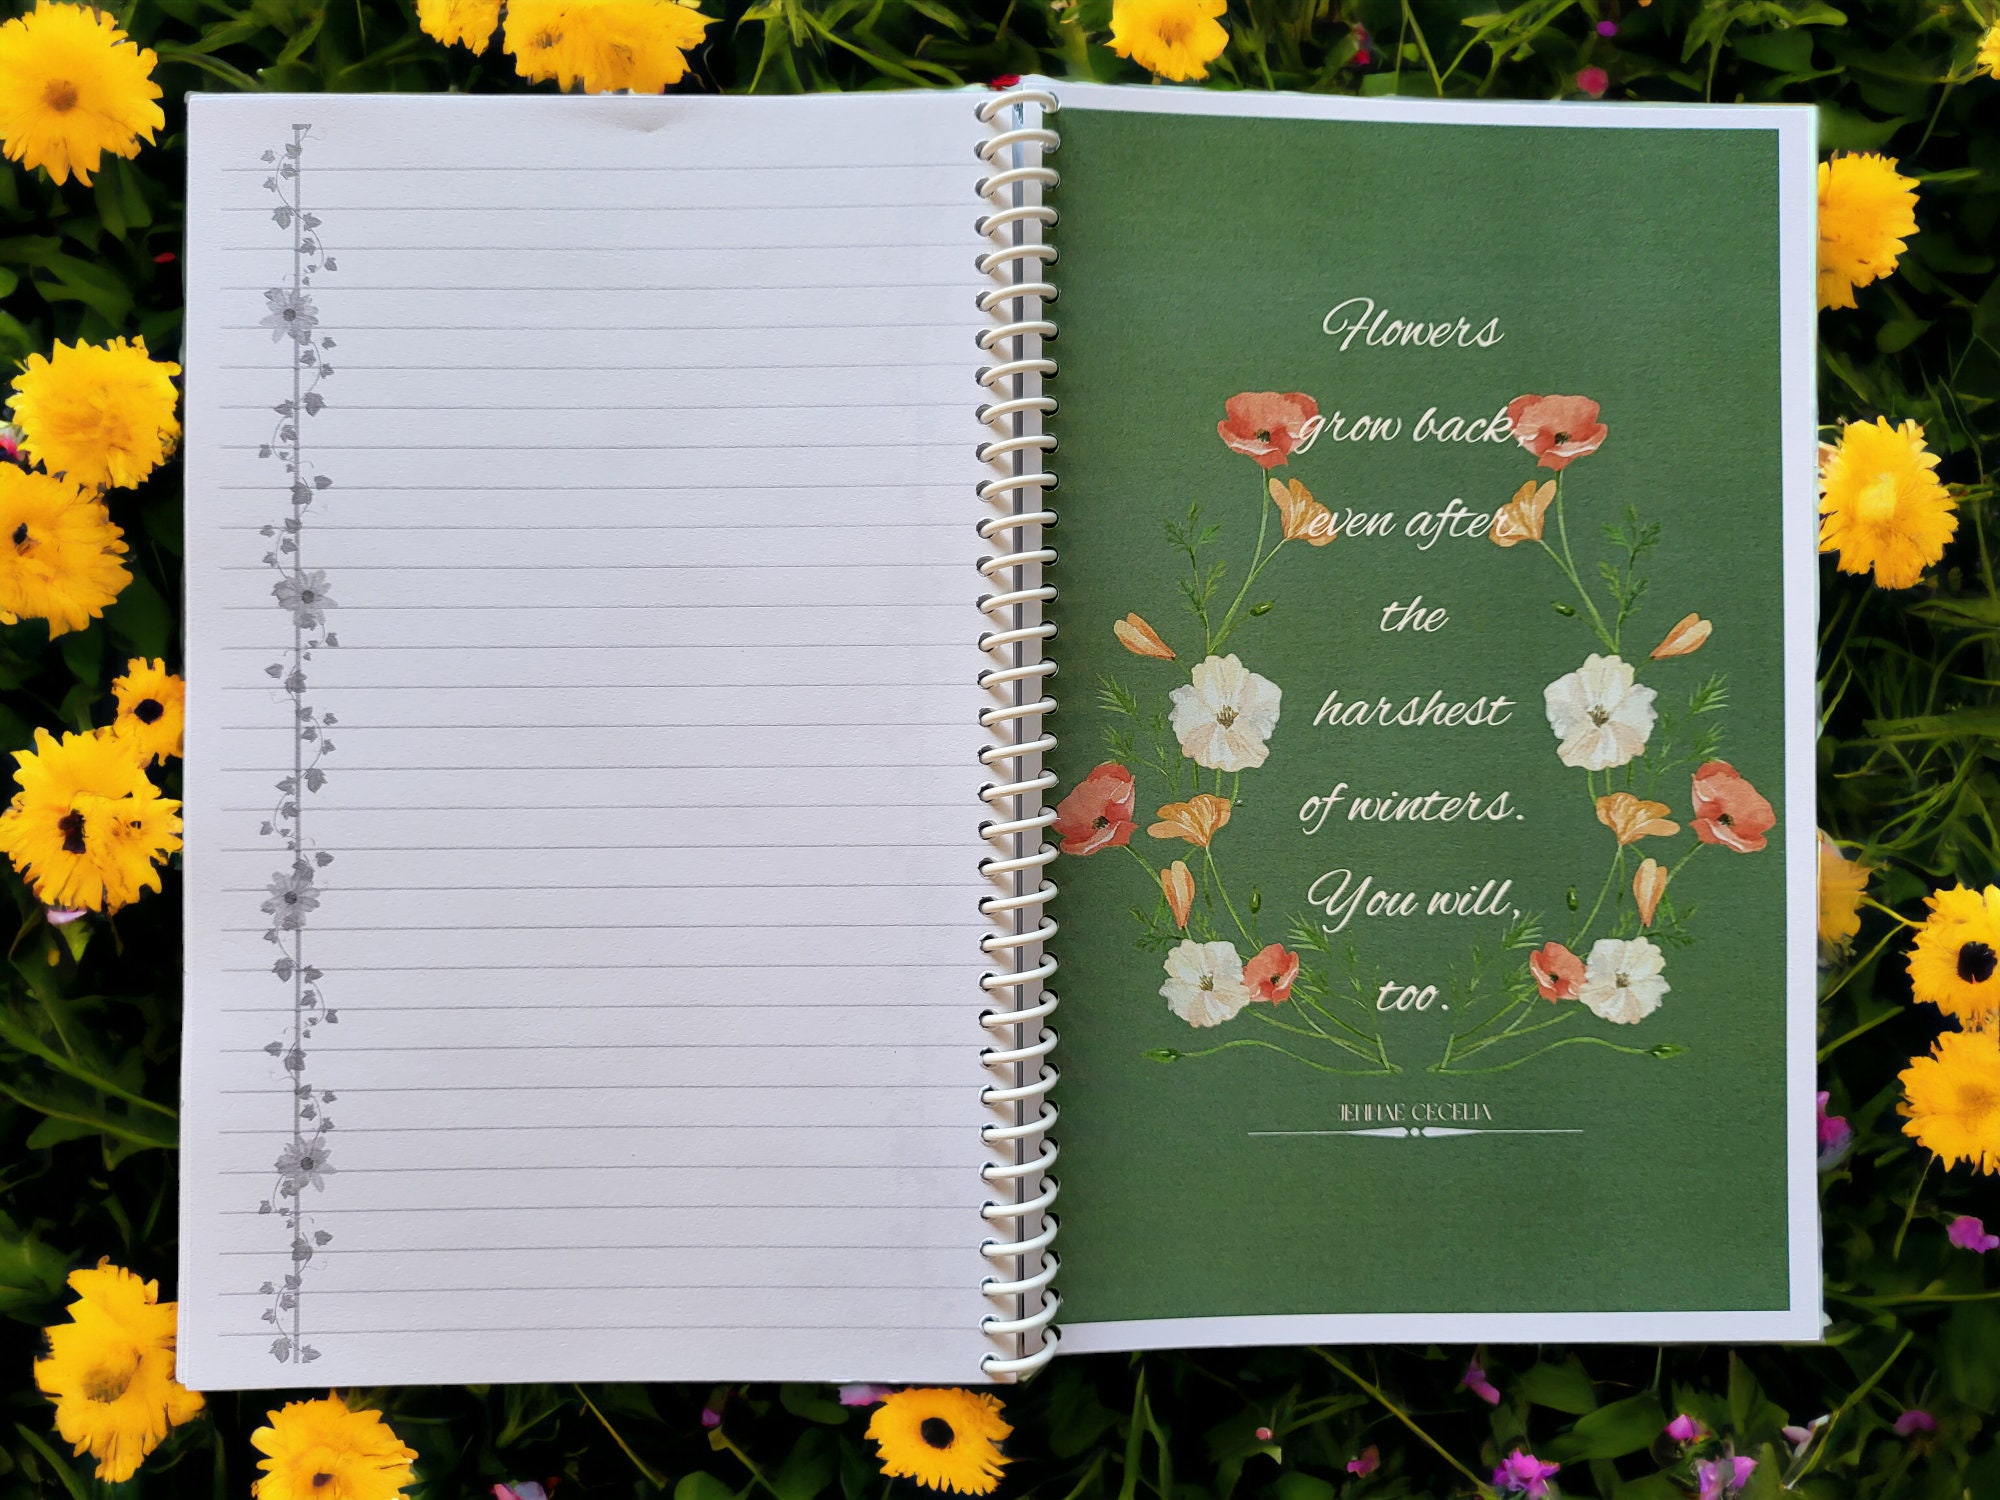 Flowers
grow back,
even after
the
harshest
of winters.
You will,
too.
JENNAE CECELIA